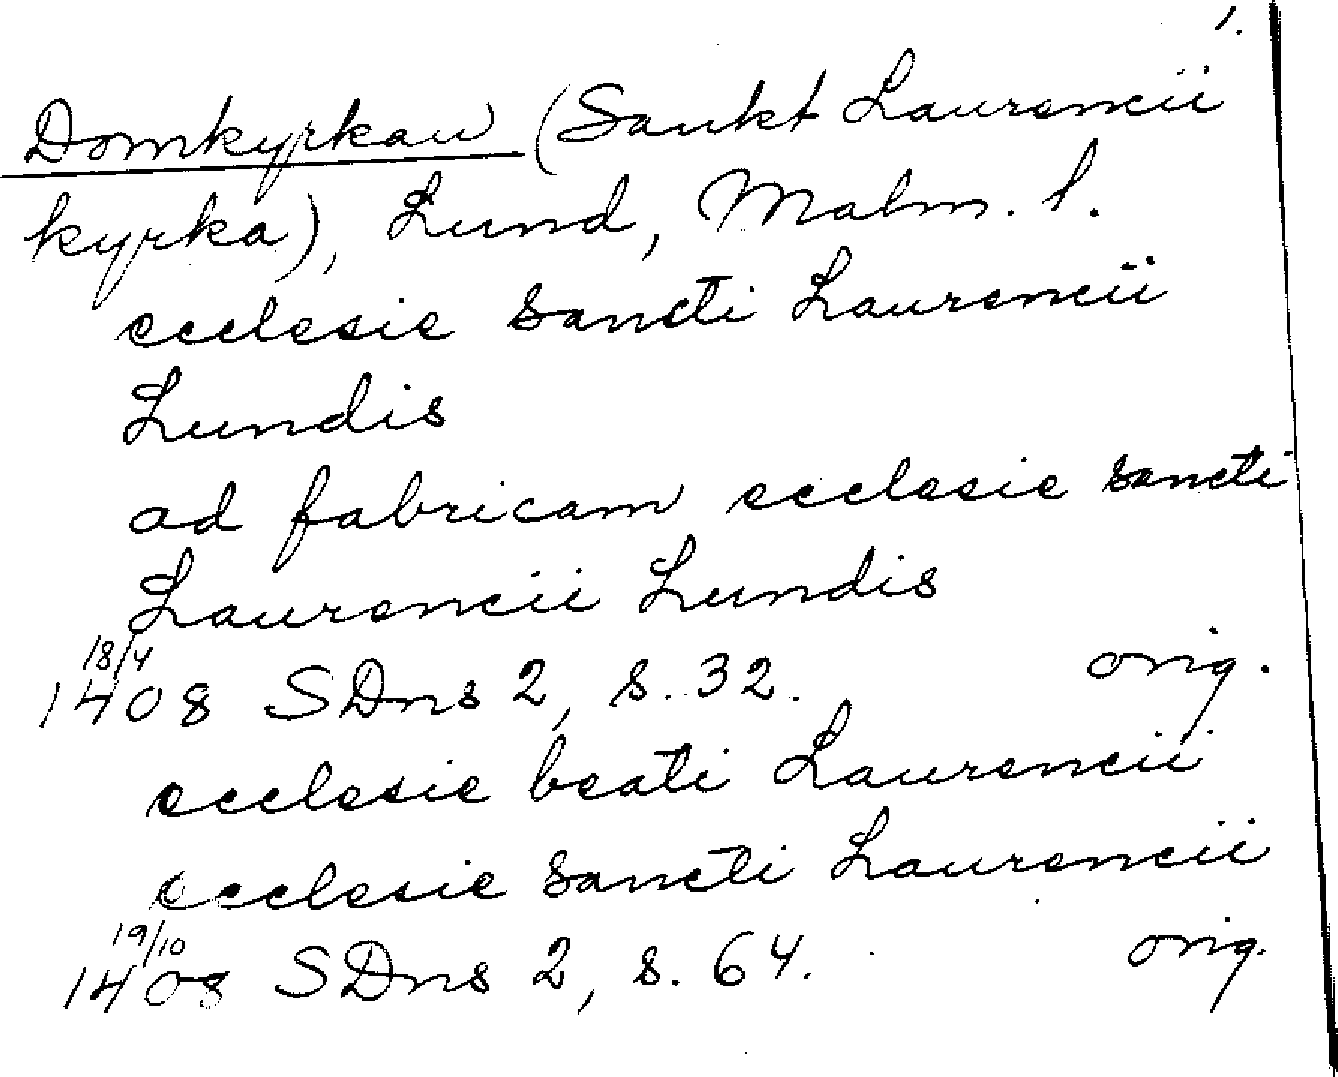 1.
Domkyrkan (Sankt Laurencii
kyrka), Lund, Malm. l.
ecclesie sancti Laurencii
Lundis
ad fabricam ecclesie sancti
Laurencii Lundis
18/4
1408 SDns 2, s. 32. orig.
ecclesie beati Laurencii
ecclesie sancti Laurencii
19/10
1408 SDns 2, s. 64. orig.